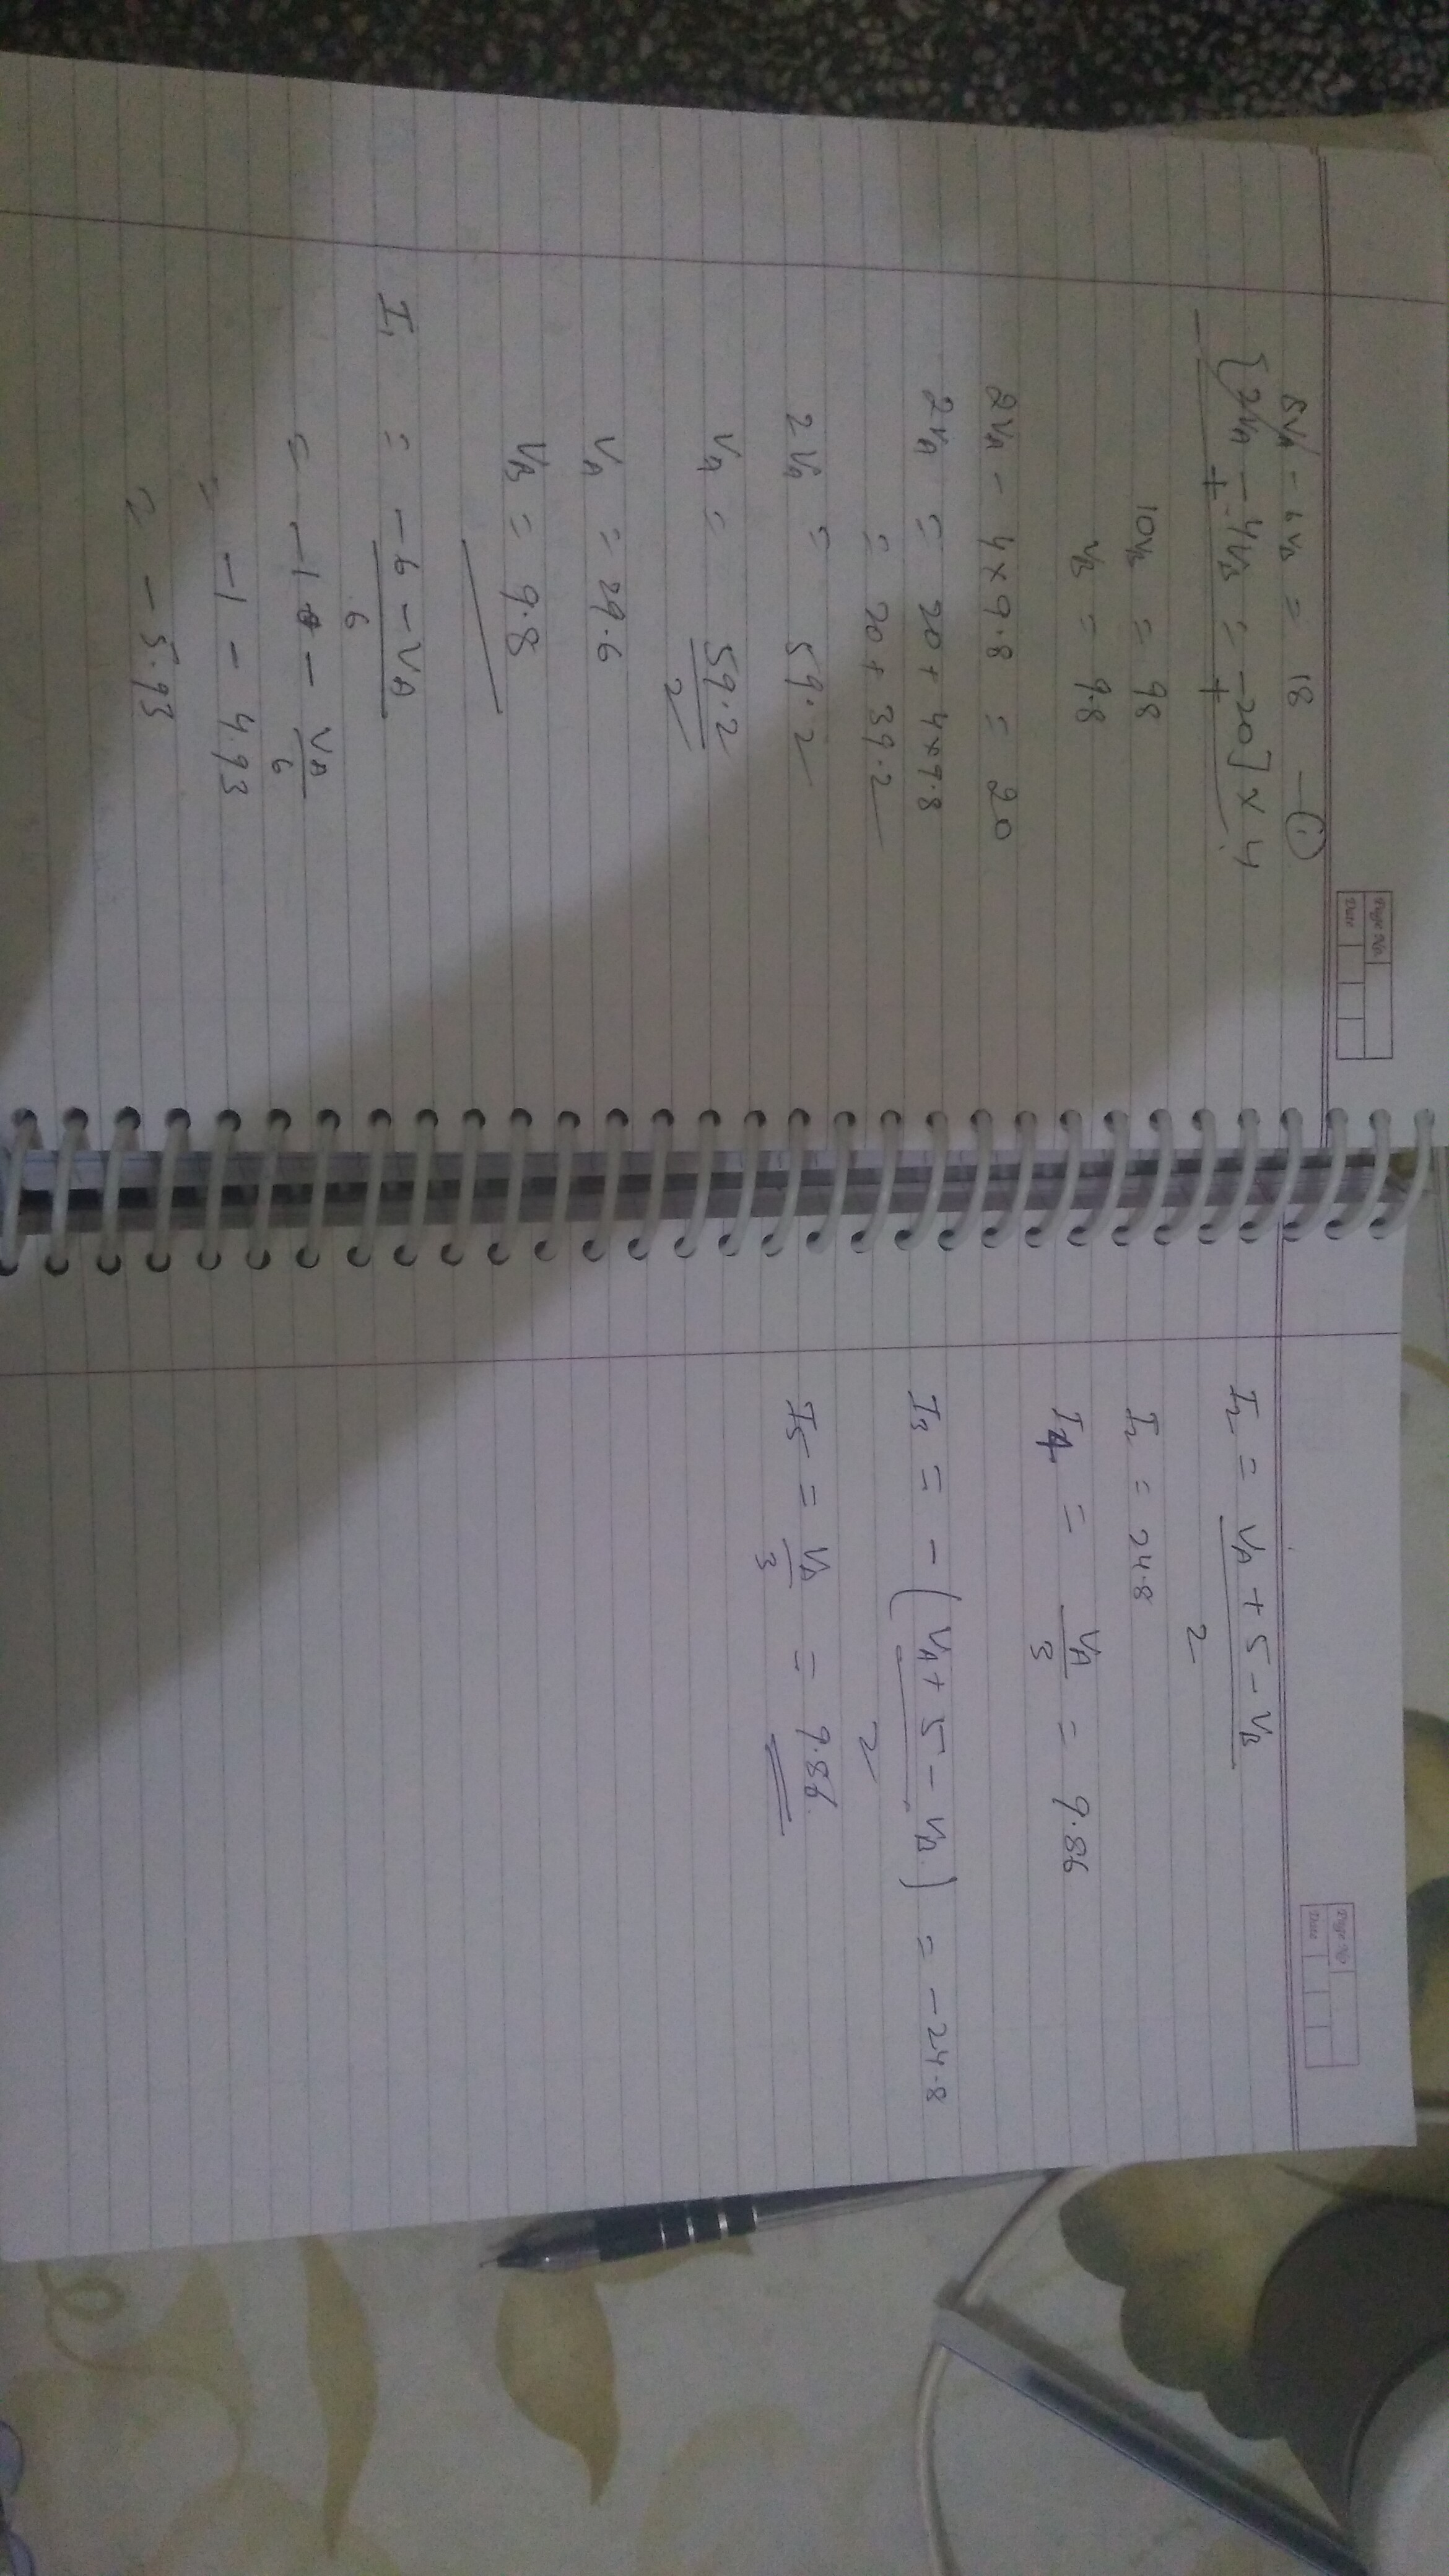 Page No.
Date
8VA - 6VB = 18 — ①
[2VA - 4VB = -20] × 4
- + +
10VB = 98
VB = 9.8
2VA - 4×9.8 = 20
2VA = 20 + 4×9.8
= 20 + 39.2
2VA = 59.2
VA = 59.2/2
VA = 29.6
VB = 9.8
I1 = -6-VA/6
= -1 - VA/6
= -1 - 4.93
= -5.93
Page No.
Date
I2 = VA + 5 - VB/2
I2 = 24.8
I4 = VA/3 = 9.86
I3 = -(VA + 5 - VB/2) = -24.8
I5 = VA/3 = 9.86